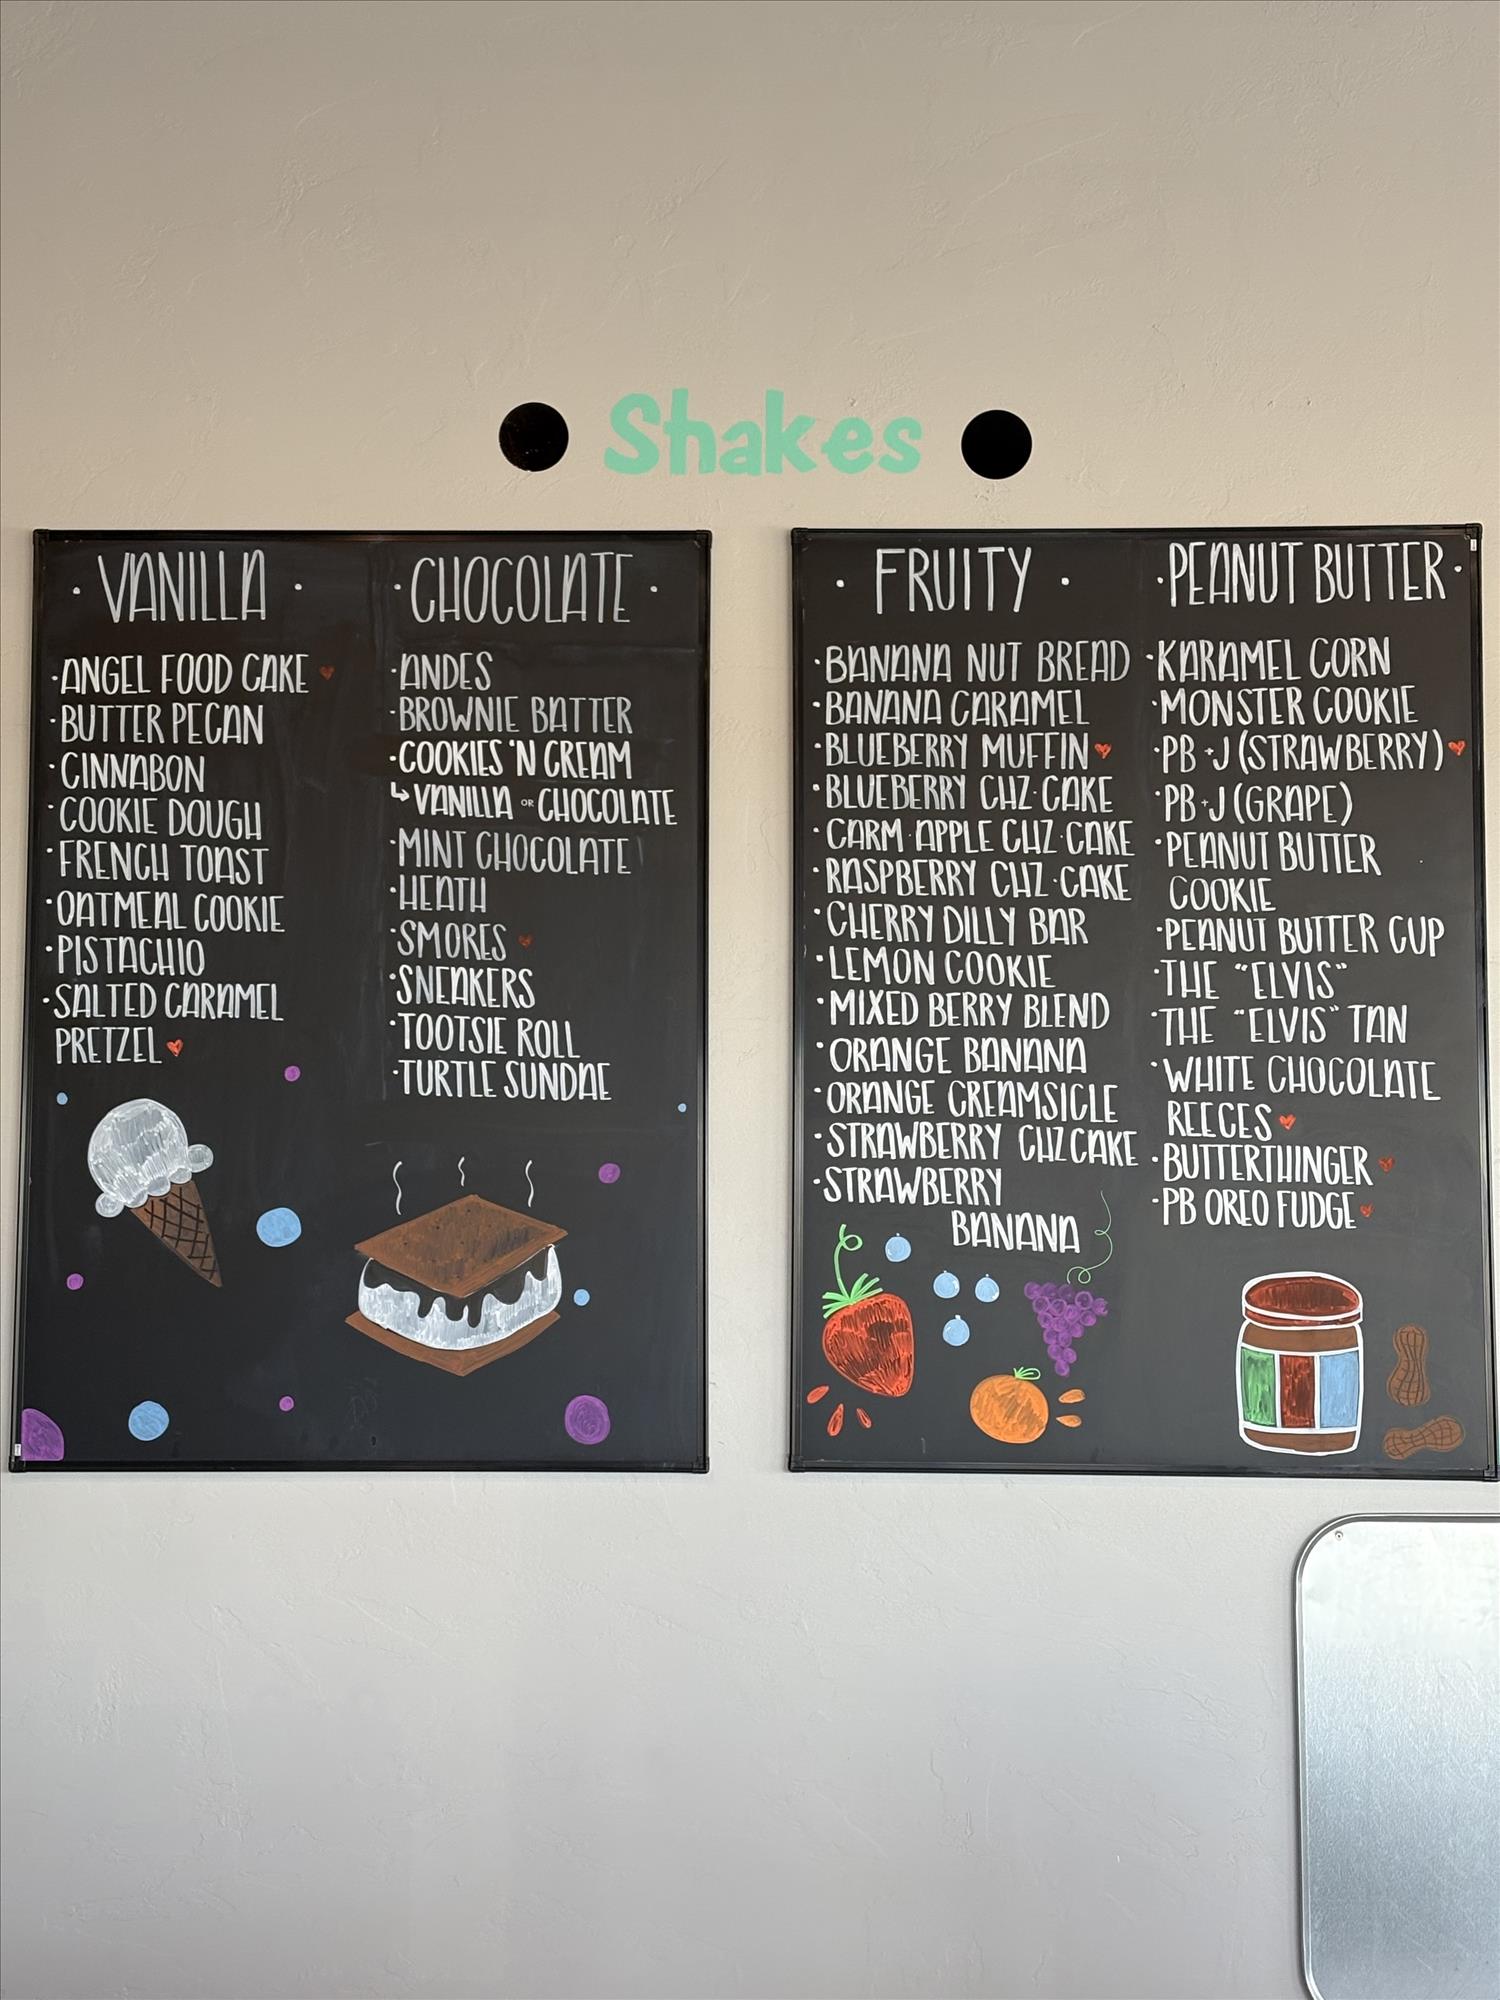 Shakes
· VANILLA ·
·ANGEL FOOD CAKE
·BUTTER PECAN
·CINNABON
·COOKIE DOUGH
·FRENCH TOAST
·OATMEAL COOKIE
·PISTACHIO
·SALTED CARAMEL
PRETZEL
·CHOCOLATE·
·ANDES
·BROWNIE BATTER
·COOKIES 'N CREAM
↳VANILLA OR CHOCOLATE
·MINT CHOCOLATE
·HEATH
·SMORES
·SNEAKERS
·TOOTSIE ROLL
·TURTLE SUNDAE
· FRUITY ·
·BANANA NUT BREAD
·BANANA CARAMEL
·BLUEBERRY MUFFIN
·BLUEBERRY CHZ·CAKE
·CARM·APPLE CHZ·CAKE
·RASPBERRY CHZ·CAKE
·CHERRY DILLY BAR
·LEMON COOKIE
·MIXED BERRY BLEND
·ORANGE BANANA
·ORANGE CREAMSICLE
·STRAWBERRY CHZCAKE
·STRAWBERRY
BANANA
·PEANUT BUTTER·
·KARAMEL CORN
·MONSTER COOKIE
·PB+J (STRAWBERRY)
·PB+J (GRAPE)
·PEANUT BUTTER
COOKIE
·PEANUT BUTTER CUP
·THE "ELVIS"
·THE "ELVIS" TAN
·WHITE CHOCOLATE
REECES
·BUTTERTHINGER
·PB OREO FUDGE